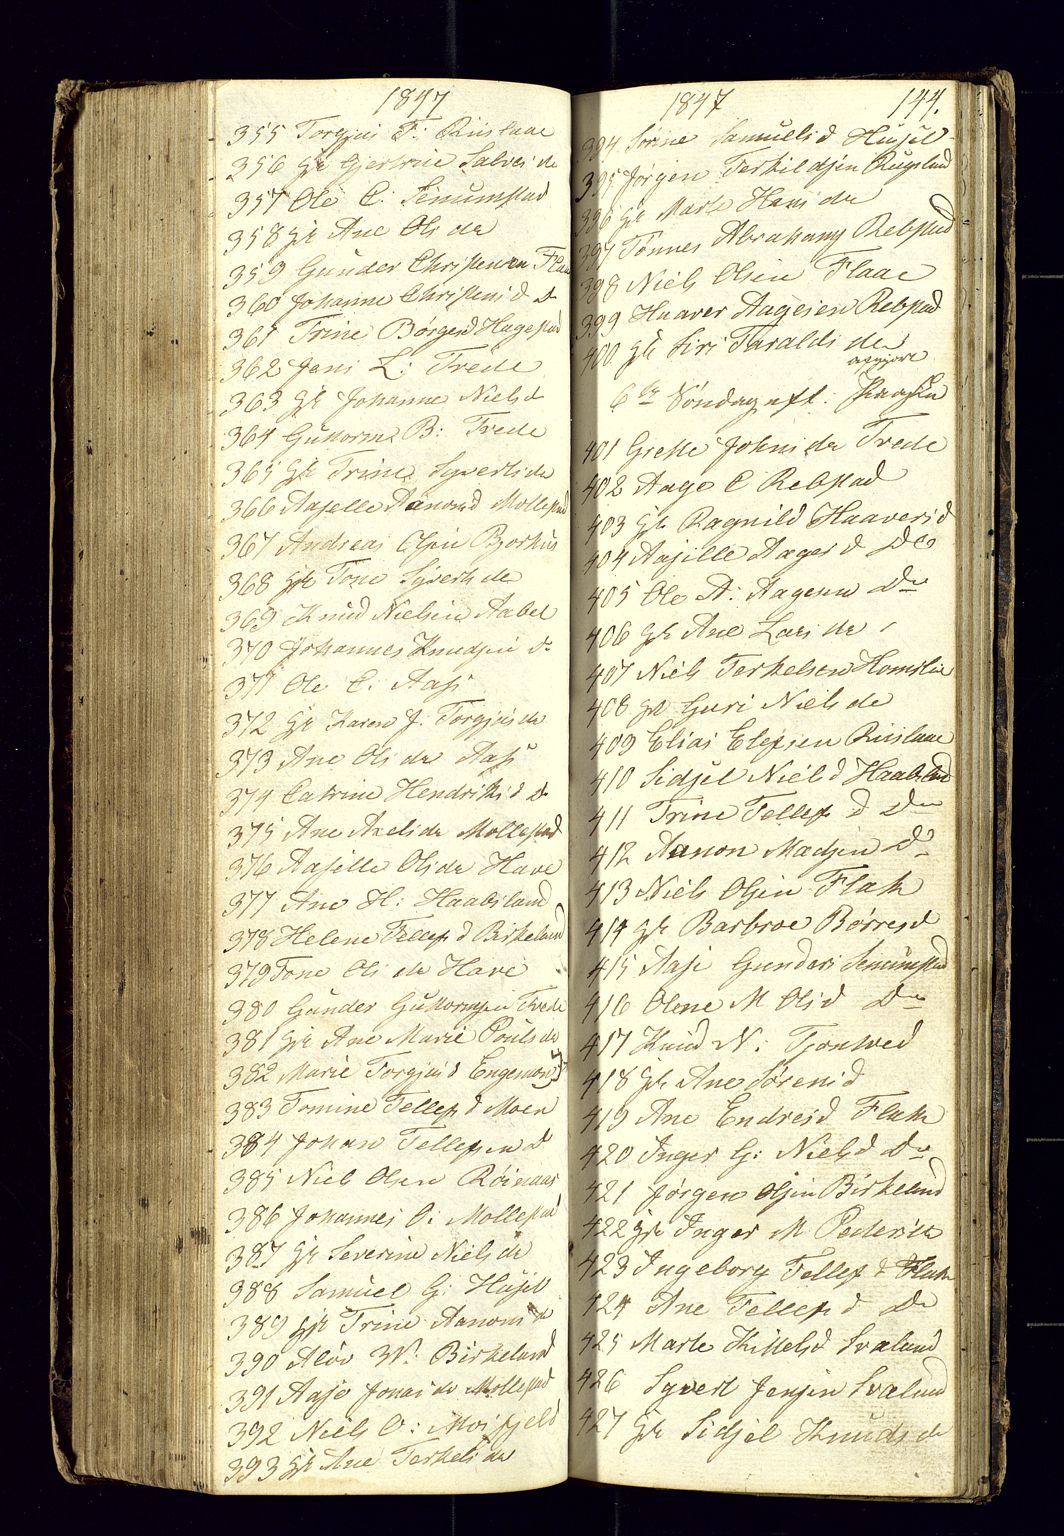 1847
355 Torgius F: Riislaae
356 Gk Gjertrine Salves de
357 Ole C. Senumstad
358 Gk Ane Ols de
359 Gunder Christensen Flaa
360 Johanne Christens d Do
361 Trine Børgesd Hagestad
362 Jens L: Trede
363 Gk Johanne Nielsd
364 Guttorm B: Trede
365 Gk Trine Syverts de
366 Aasille Aanonsd Mollestad
367 Andreas Olsen Bjorkus
368 Gk Tone Syverts de
369 Knud Nielsen Aabel
370 Johannes Knudsen Do
371 Ole C. Aas
372 Gk Karen J. Torgjus de
373 Ane Ols de Aas
374 Catrine Hendriks d Do
375 Ane Axels de Mollestad
376 Aasille Ols de Have
377 Ane H: Haabsland
378 Helene Tellefs d Birkeland
379 Tone Ols de Have
380 Gunder Guttormsen Trede
381 Gk Ane Marie Pouls de
382 Marie Torgjus d Engemoen
383 Tomine Tellefs d Moen
384 Johan Tellefsen D
385 Niels Olsen Røinaas
386 Johannes O: Mollestad
387 Gk Severine Niels de
388 Samuel G: Husjel
389 Gk Trine Aanons de
390 Alov W. Birkeland
391 Aase Jonas de Mollestad
392 Niels O: Moisfjeld
393 Gk Ane Terkels de
1847 144.
394 Sørine Samuelsd Husjel
395 Jørgen Terkildsen Rugslad
396 Gk Marte Hans de
397 Tønnes Abrahams Rebstad
398 Niels Olsen Flaae
399 Haaver Aagesen Rebstad
400 Gk Siri Taralds de
6te Søndag eft: Paaske
401 Grethe Johns de Trede
402 Aage C Rebstad
403 Gk Ragnild Haavers d
404 Aasille Aages d Do
405 Ole A: Aagesen Do
406 Gk Ane Lars de
407 Niels Terkelsen Homslien
408 Gk Guri Niels de
409 Elias Elefsen Riislaae
410 Sidsel Niels d Haabsland
411 Trine Tellefs d Do
412 Aanon Madsen Do
413 Niels Olsen Flak
414 Gk Barbroe Børresd
415 Aase Gunders Senumstad
416 Olene M Olsd Do
417 Knud N: Tjonwed
418 Gk Ane Sørensd
419 Ane Endresd Flak
420 Inger G: Nielsd Do
421 Jørgen Olsen Birkeland
422 Gk Inger M Peders de
423 Ingeborg Tellefs d Flak
424 Ane Tellefs d Do
425 Marte Kittelsd Svaland
426 Syvert Jensen Svaland
427 Gk Sidsel Knuds de